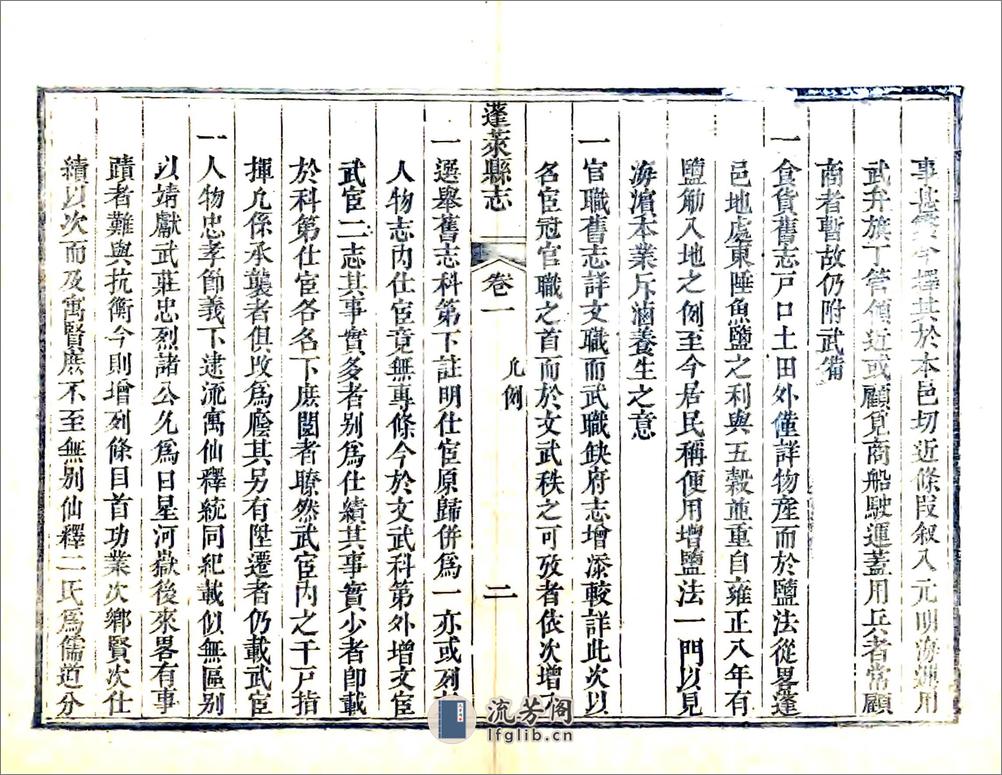 事甚繁今擇其於本邑切近條段叙入元明海運用
武弁旗丁管領近或顧覓商船駛運蓋用兵者常顧
商者暫故仍附武備
一食貨舊志戸口土田外僅詳物産而於鹽法從畧蓬
邑地處東陲魚鹽之利與五榖並重自雍正八年有
鹽觔入地之例至今居民稱便用增鹽法一門以見
海濵本業斥滷養生之意
一官職舊志詳文職而武職缺府志增添較詳此次以
名宦冠官職之首而於文武秩之可攷者依次增
蓬萊縣志 卷一 凡例 二
一選舉舊志科第下註明仕宦原歸併爲一亦或列
人物志内仕宦竟無專條今於文武科第外增文宦
武宦二志其事實多者别爲仕績其事實少者卽載
於科第仕宦各名下庶閱者瞭然武宦内之千戸指
揮凢係承襲者俱攺爲廕其另有陞遷者仍載武宦
一人物忠孝節義下逮流寓仙釋統同紀載似無區别
以靖獻武莊忠烈諸公允爲日星河嶽後來畧有事
蹟者難與抗衡今則增列條目首功業次鄉賢次仕
績以次而及寓賢庶不至無别仙釋二氏爲儒道分
流芳阁
lfglib.cn